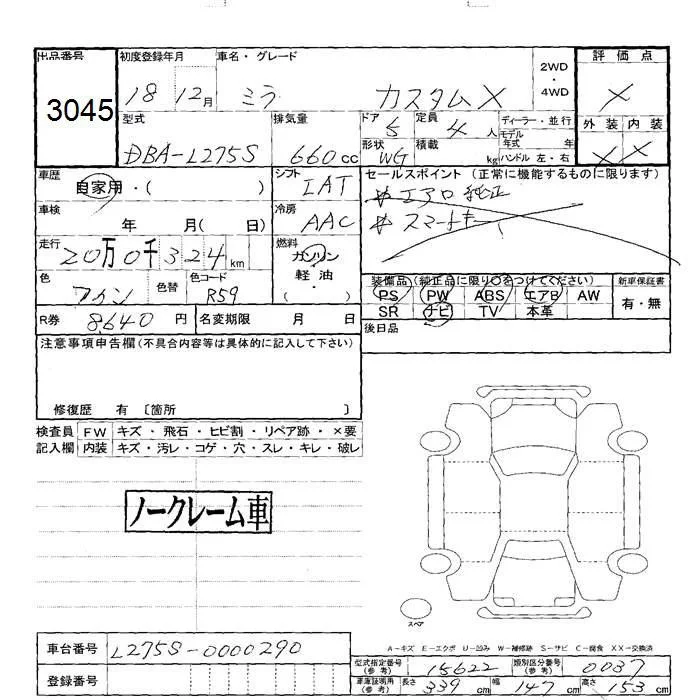 出品番号 初度登録年月 車名・グレード 2WD・4WD 評価点
3045 18 12月 ミラ カスタムX ×
型式 排気量 ドア 5 定員 4人 ディーラー・並行 外装 内装
DBA-L275S 660cc 形状 WG 積載 kg モデル年式 年 ハンドル 左・右 × ×
車歴 自家用・( ) シフト IAT セールスポイント (正常に機能するものに限ります)
# エアロ 純正
車検 年 月( 日) 冷房 AAC # スマートキー
走行 20万0千324km 燃料 ガソリン 軽油・( )
色 色替 色コード R59
装備品 (純正品に限り○をつけてください) 新車保証書
PS PW ABS エアB AW 有・無
R券 8640円 名変期限 月 日 SR ナビ TV 本革
後日品
注意事項申告欄(不具合内容等は具体的に記入して下さい)
修復歴 有 〔箇所 〕
検査員 FW キズ・飛石・ヒビ割・リペア跡・×要
記入欄 内装 キズ・汚レ・コゲ・穴・スレ・キレ・破レ
ノークレーム車
スペア
A-キズ E-エクボ U-凹み W-補修跡 S-サビ C-腐食 XX-交換済
車台番号 L275S-0000290 型式指定番号(参考) 15622 類別区分番号(参考) 0037
登録番号 車庫証明用(参考) 長さ 339cm 幅 147cm 高さ 153cm